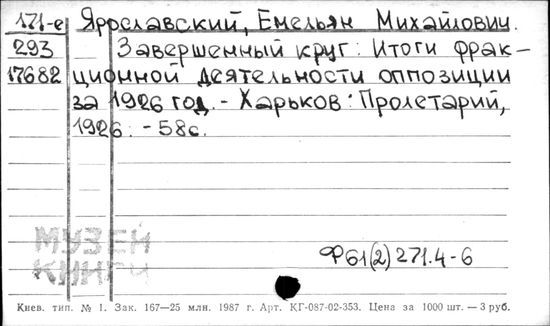 171-е Ярославский, Емельян Михайлович.
293 Завершенный круг: Итоги фрак-
17682 ционной деятельности оппозиции
за 1926 год. - Харьков: Пролетарий,
1926. - 58с.
МУЗЕЙ
КНИГИ
Ф61(2)271.4-6
Киев. тип. № 1. Зак. 167—25 млн. 1987 г. Арт. КГ-087-02-353. Цена за 1000 шт. — 3 руб.